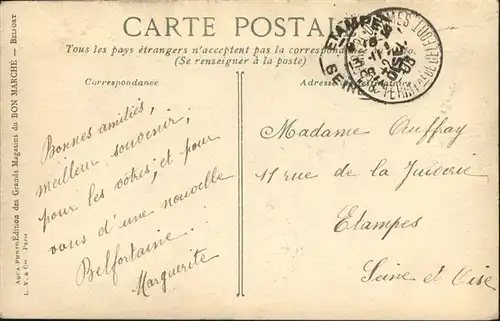 CARTE POSTALE
Tous les pays étrangers n'acceptent pas la correspondance
(Se renseigner à la poste)
Correspondance
Adresse
Bonnes amitiés,
meilleur souvenir,
pour les vôtres, et pour
vous d'une nouvelle
Belfortaine.
Marguerite
Madame Auffray
11 rue de la Juiverie
Etampes
Seine et Oise
AQUA-PHOTO Édition des Grands Magasins du BON MARCHÉ — BELFORT
L. V. & Cie PARIS
ETAMPES
SEINE